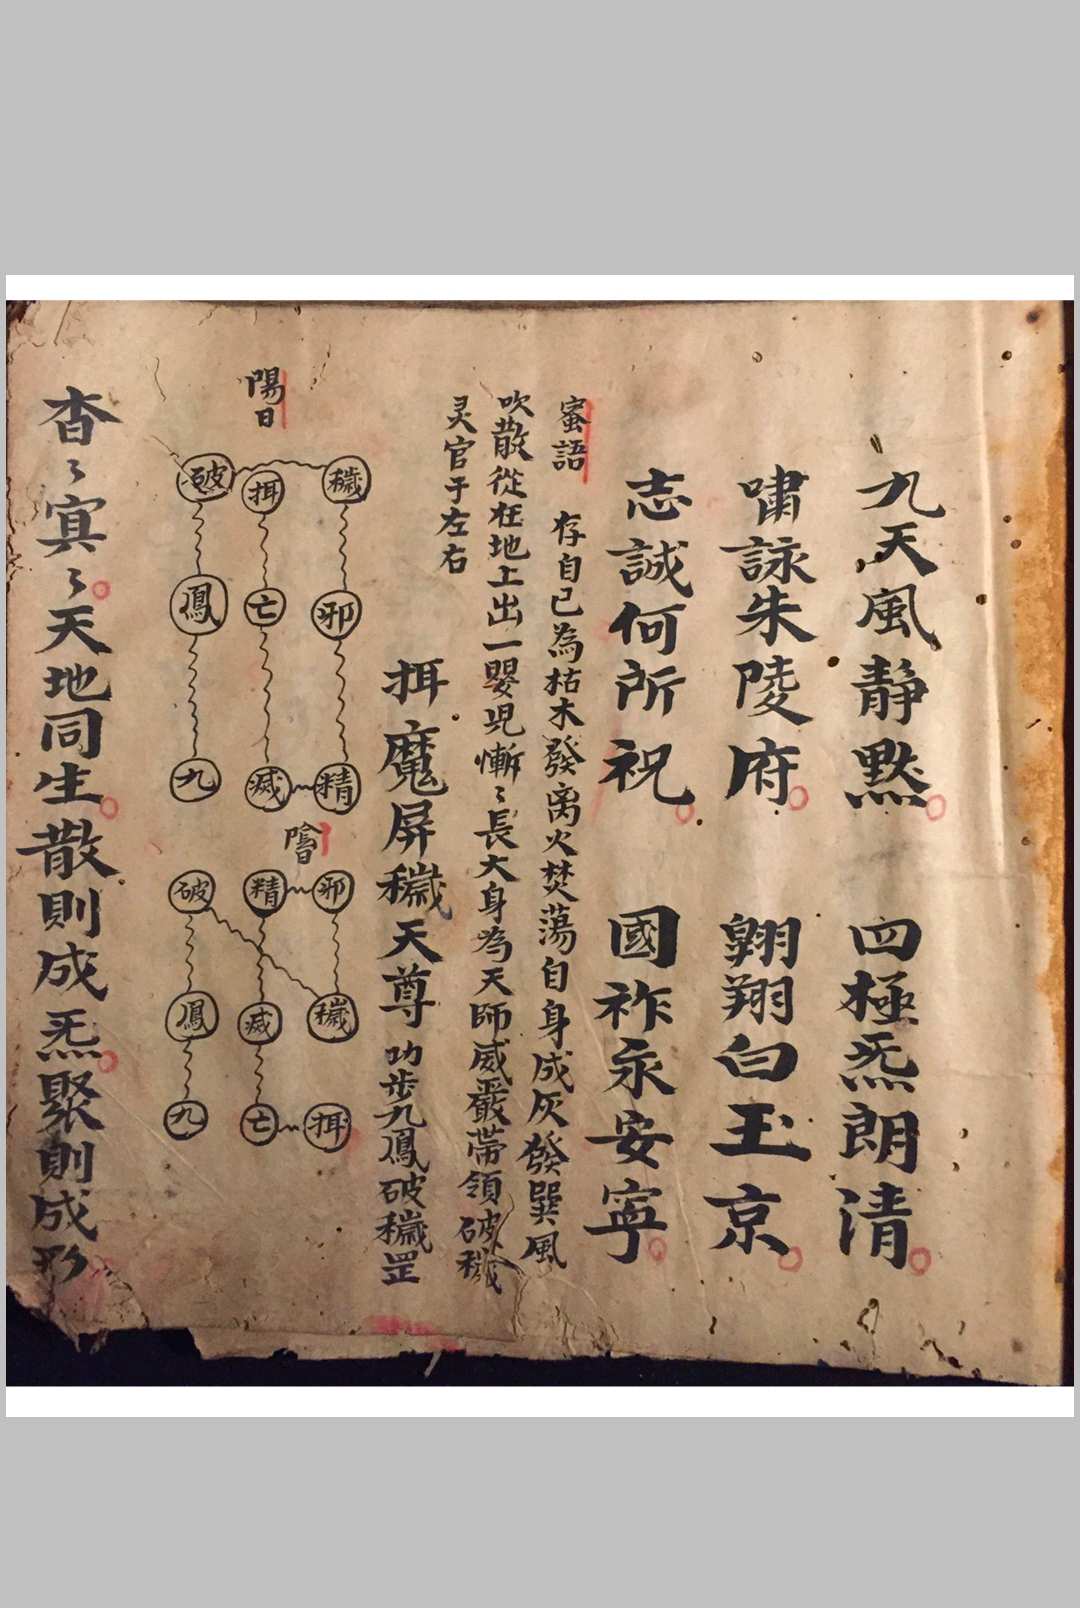 九天風靜黙 四極炁朗清
嘯詠朱陵府 翺翔白玉京
志誠何所祝 國祚永安寧
蜜語 存自己為枯木發离火焚蕩自身成灰發巽風
吹散從在地上出一嬰児慚〻長大身為天師威嚴帶領破穢
灵官于左右
挕魔屏穢天尊 功步九鳳破穢罡
陽日
穢 邪 精
挕 亡 滅
破 鳳 九
陰日
邪 穢 挕
精 滅 亡
破 鳳 九
杳〻寘〻天地同生散則成炁聚則成形